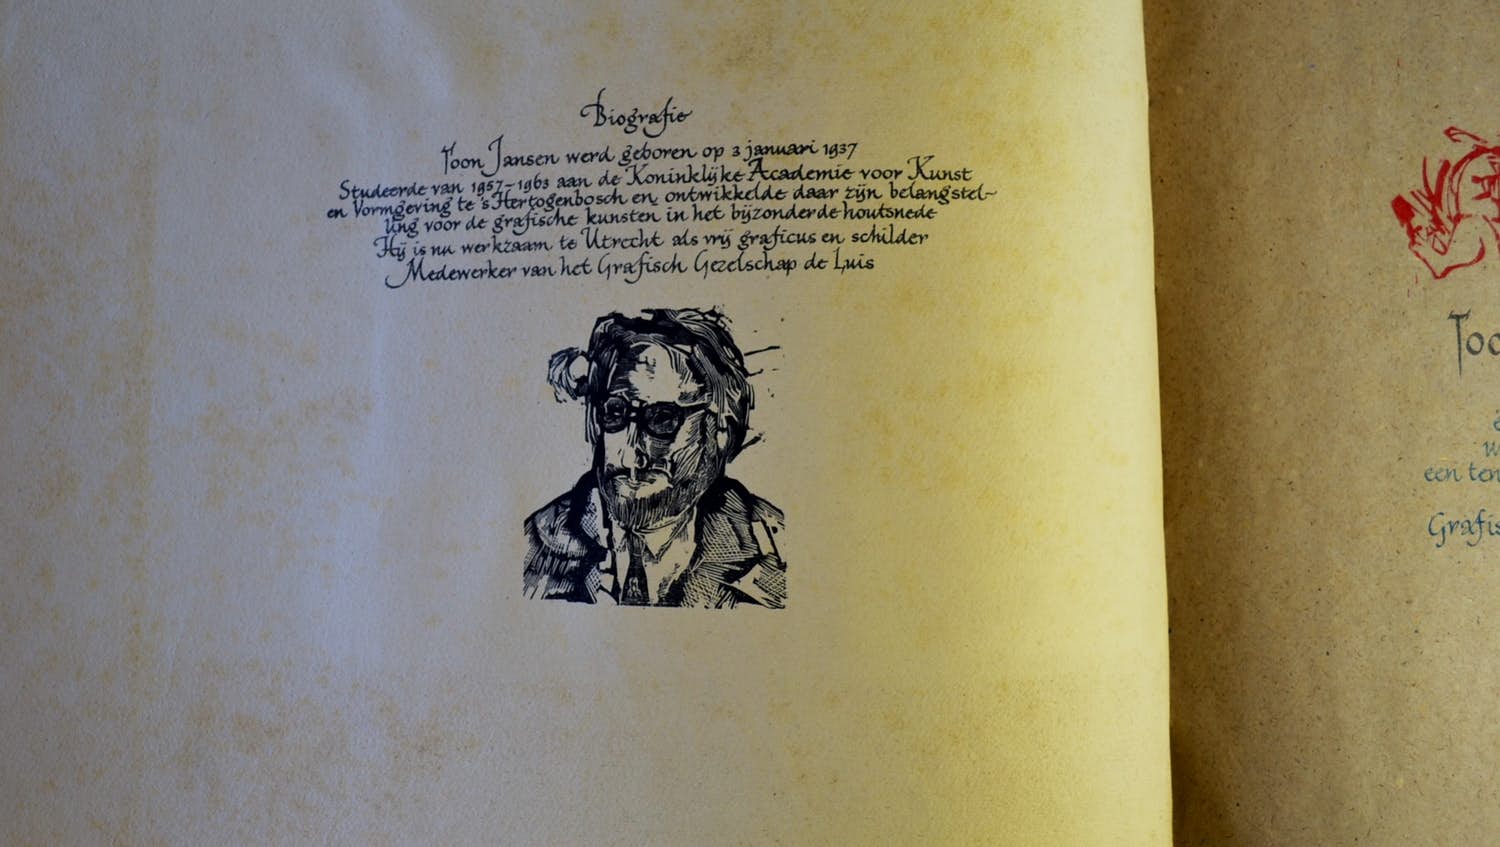 Biografie
Toon Jansen werd geboren op 3 januari 1937
Studeerde van 1957-1963 aan de Koninklijke Academie voor Kunst
en Vormgeving te 's Hertogenbosch en ontwikkelde daar zijn belangstel-
ling voor de grafische kunsten in het bijzonder de houtsnede
Hij is nu werkzaam te Utrecht als vrij graficus en schilder
Medewerker van het Grafisch Gezelschap de Luis
een